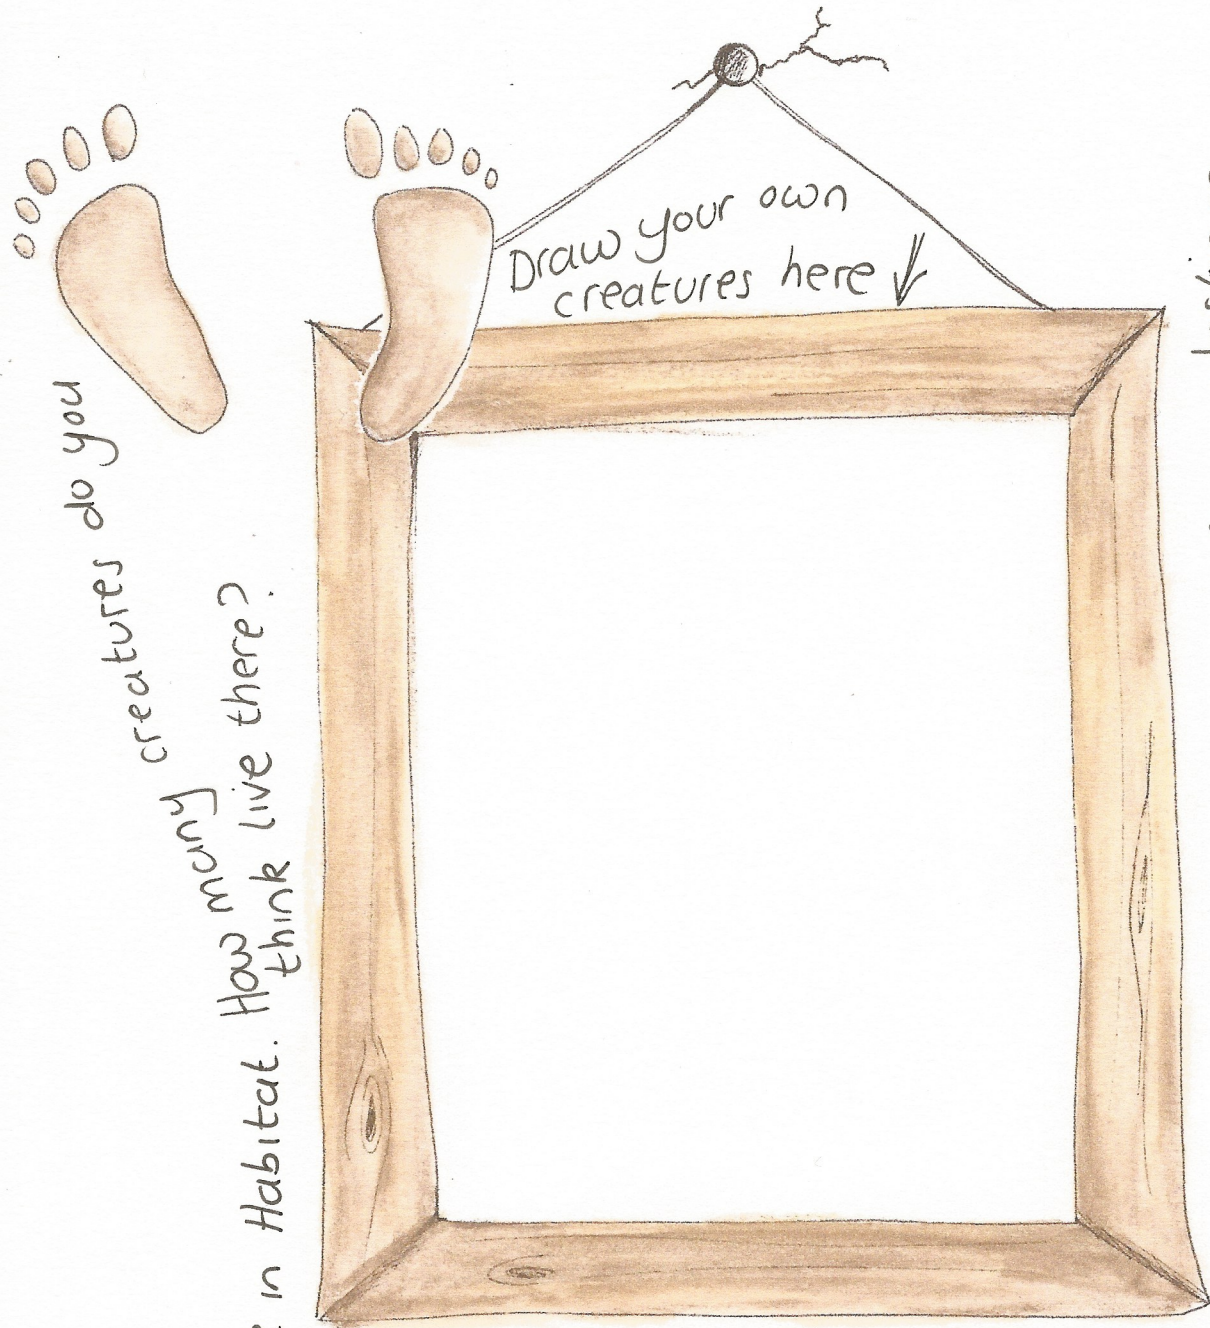 Draw your own
creatures here
in Habitat. How many creatures do you
think live there?